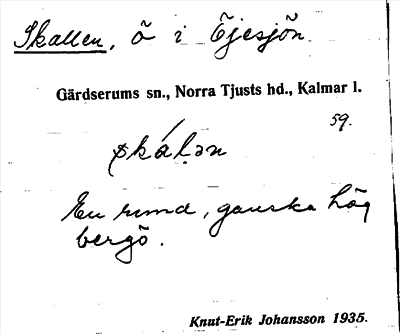 Skallen, ö i Öjesjön.
Gärdserums sn., Norra Tjusts hd., Kalmar l.
59.
skáḷən
En rund, ganska hög
bergö.
Knut-Erik Johansson 1935.